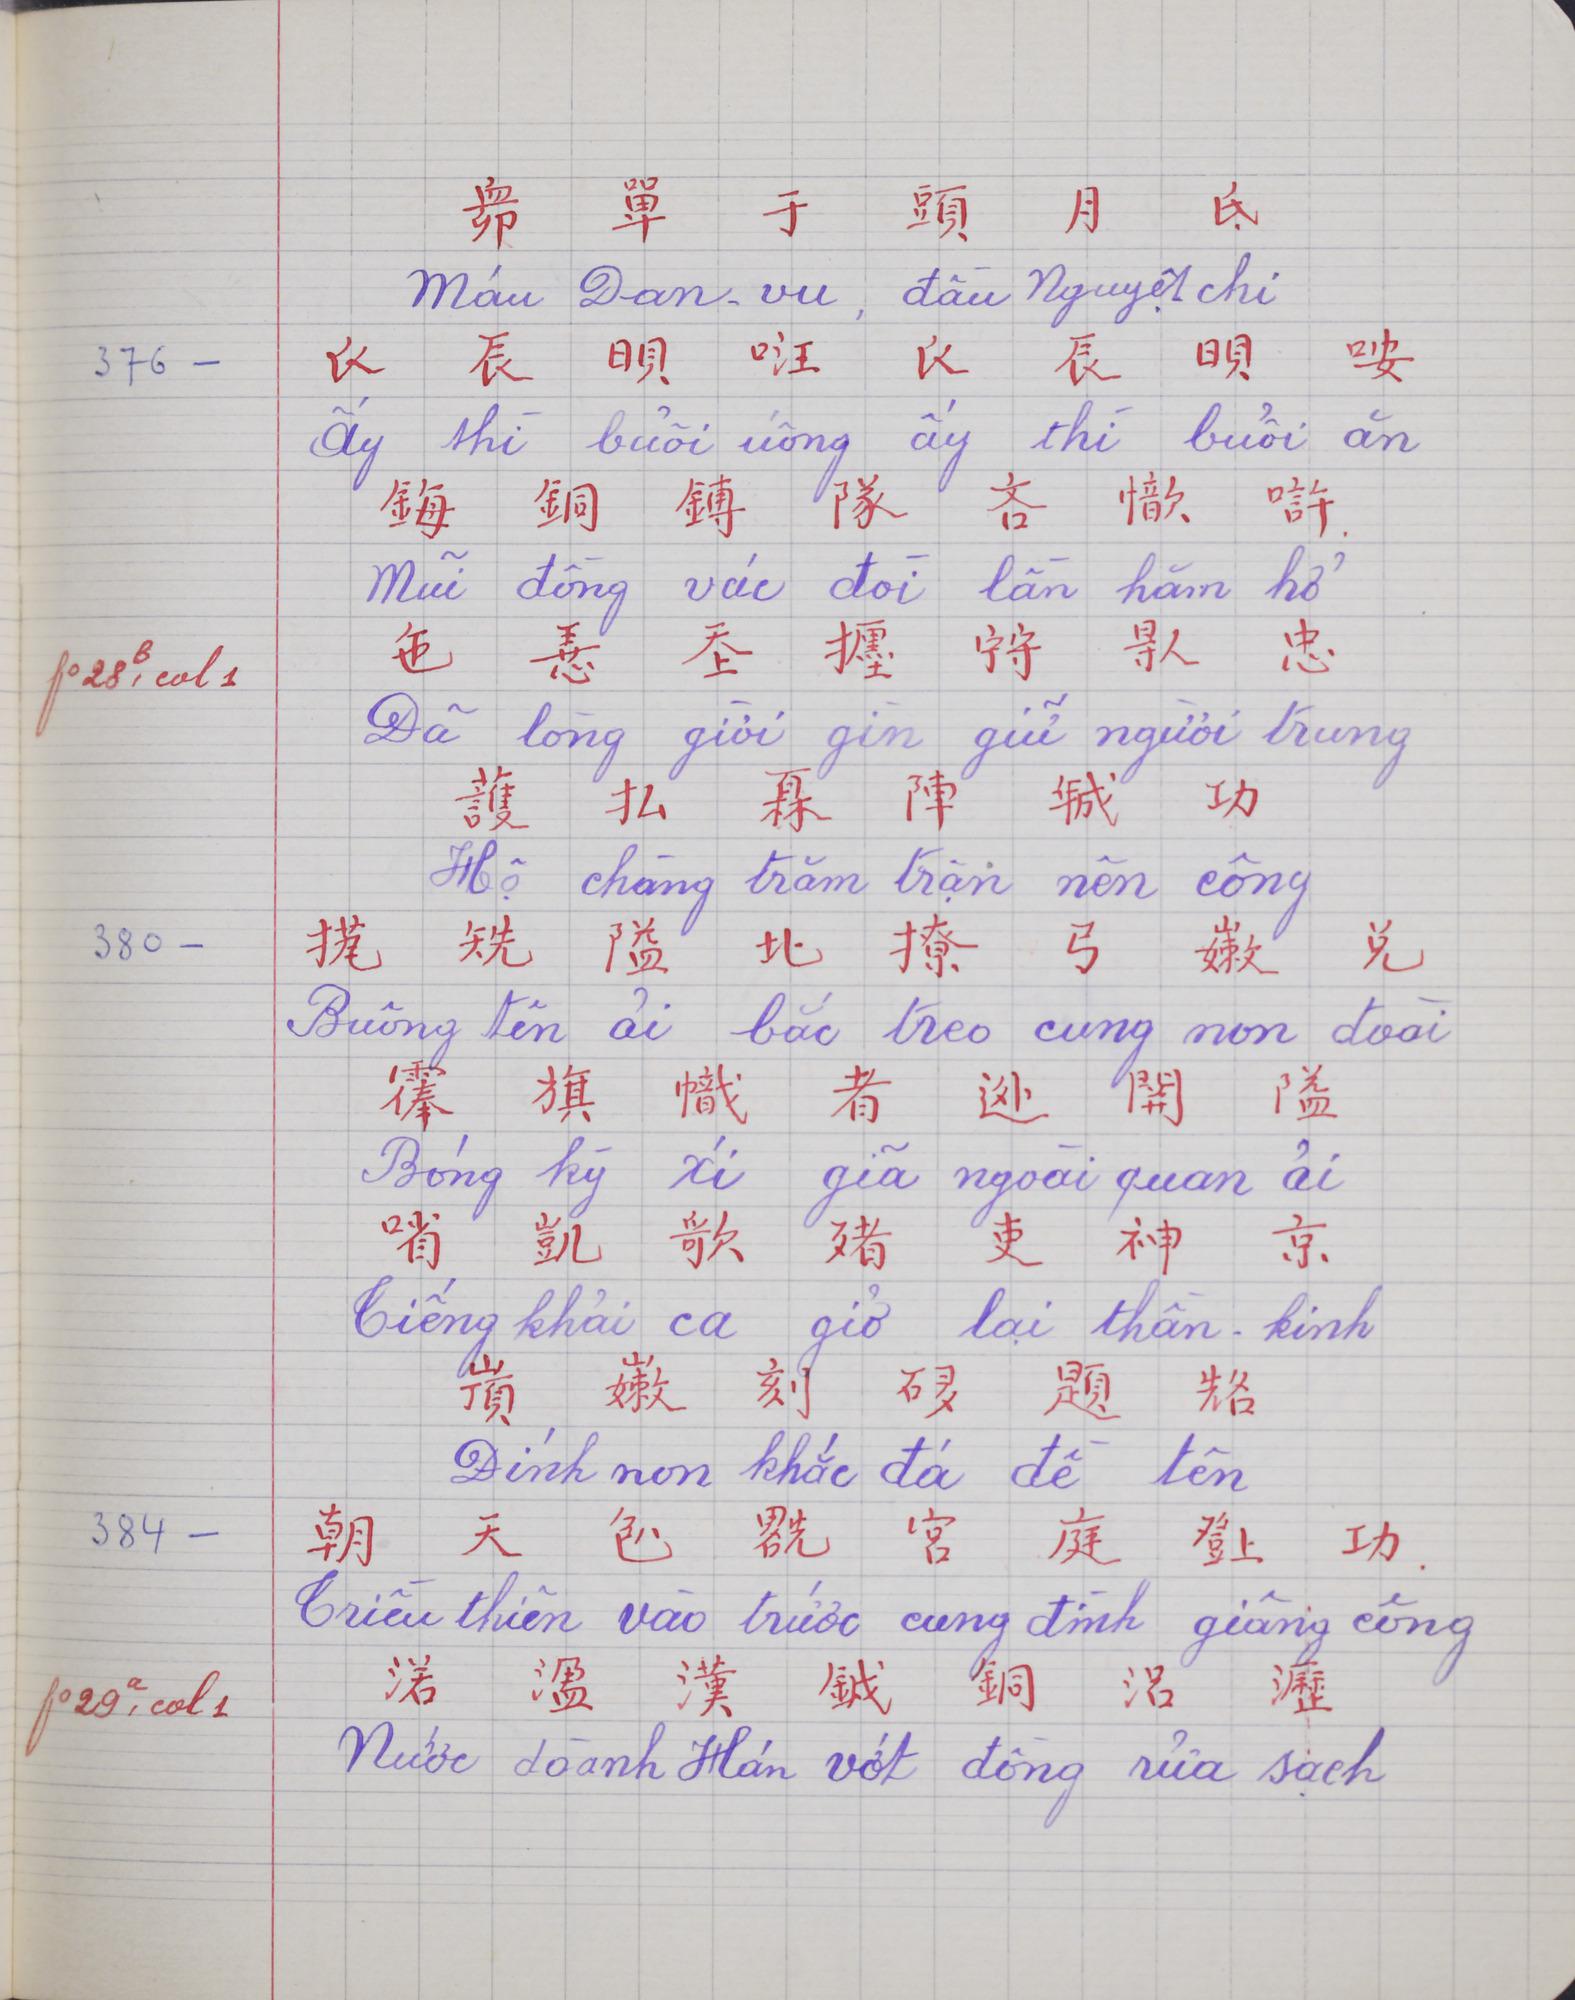 單 于 頭 月 氏
Máu Đan-vu, đầu Nguyệt chi
376 – 辰 𣇜 㕵 辰 𣇜 咹
Ấy thì buổi uống ấy thì buổi ăn
銅 鏄 隊 吝 歆 許.
Mũi đòng vác đòi lần hăm hở
fº 28ᵇ, col 1 㐌 𢚸 𡗶 忠
Đã lòng giời gìn giữ người trung
護 払 𤾓 陣 𢧚 功
Hộ chàng trăm trận nên công
380 – 隘 北 撩 弓 嫩 兑
Buông tên ải bắc treo cung non đoài
旗 幟 者 開 隘
Bóng kỳ xí giã ngoài quan ải
㗂 凱 歌 吏 神 京
Tiếng khải ca giở lại thần-kinh
嫩 刻 題
Đỉnh non khắc đá đề tên
384 – 朝 天 宮 庭 功.
Triều thiên vào trước cung đình giâng công
fº 29ᵃ, col 1 渃 漢 銅
Nước doành Hán vớt đòng rửa sạch